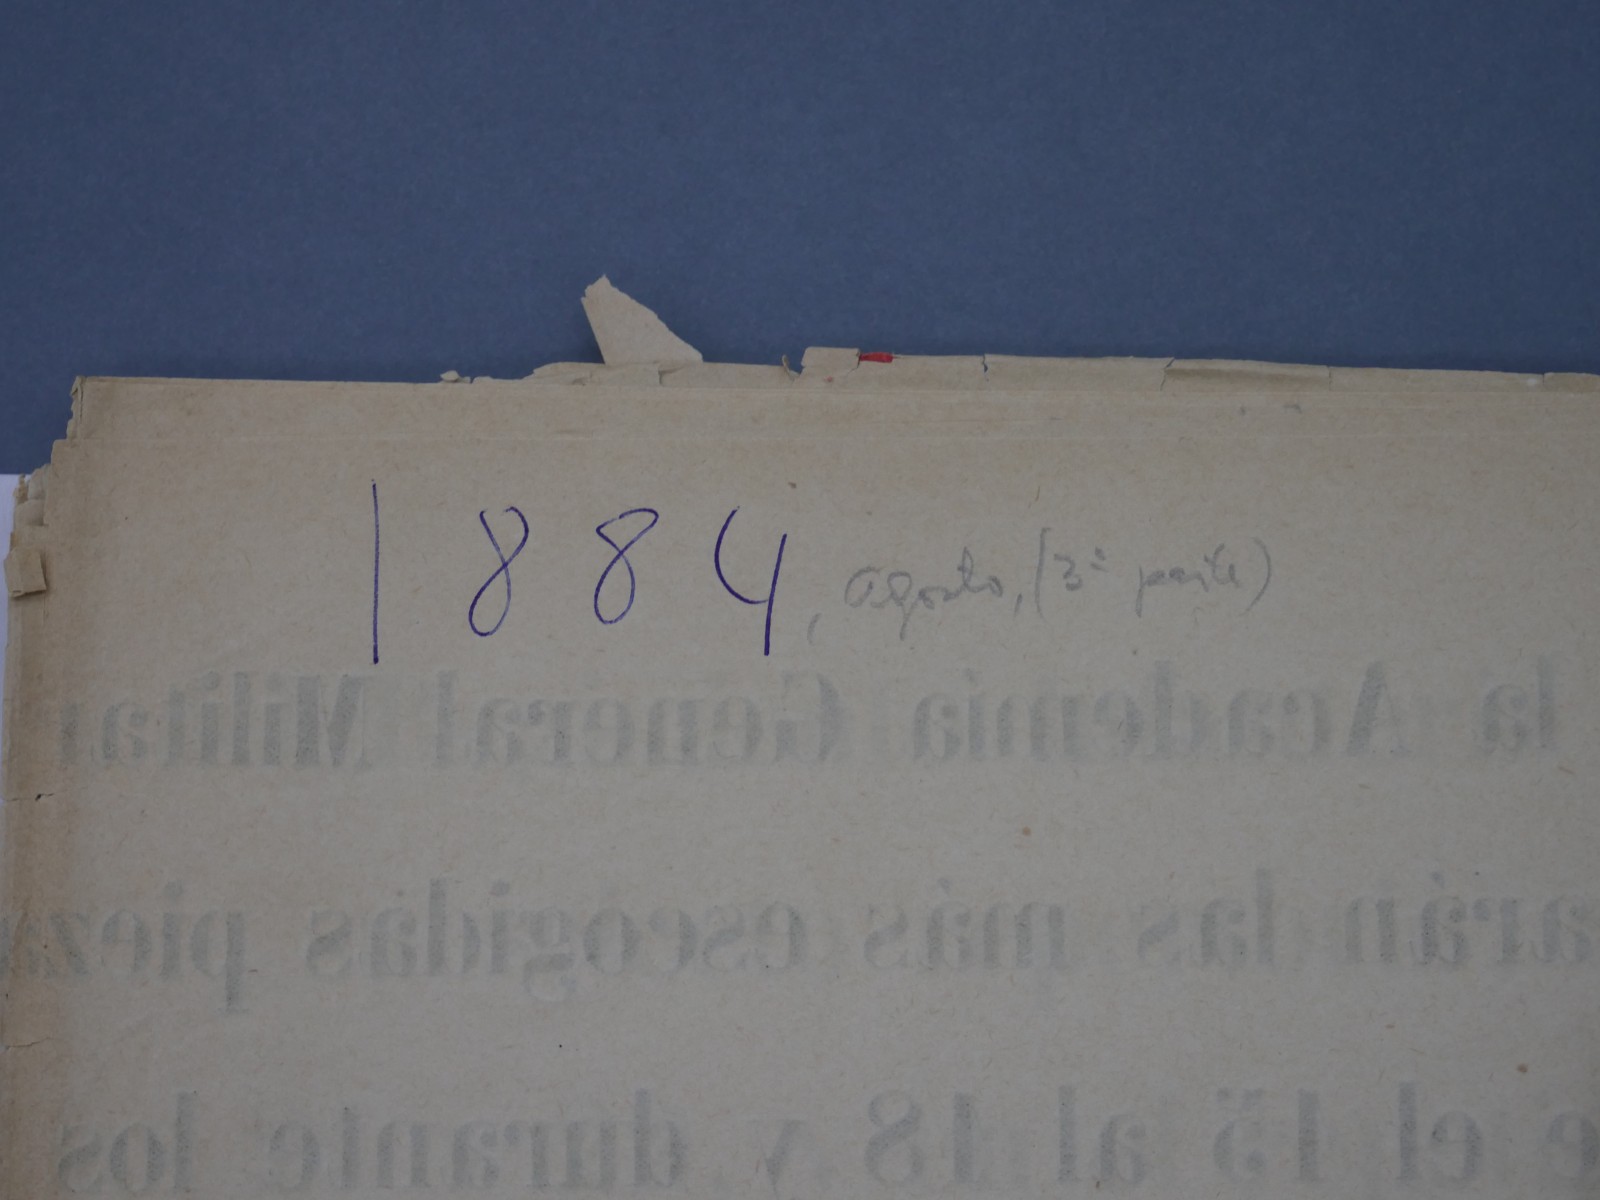 1884, agosto, (3ª parte)
la Academia General Militar
arán las más escogidas pieza
e el 15 al 18 y durante los